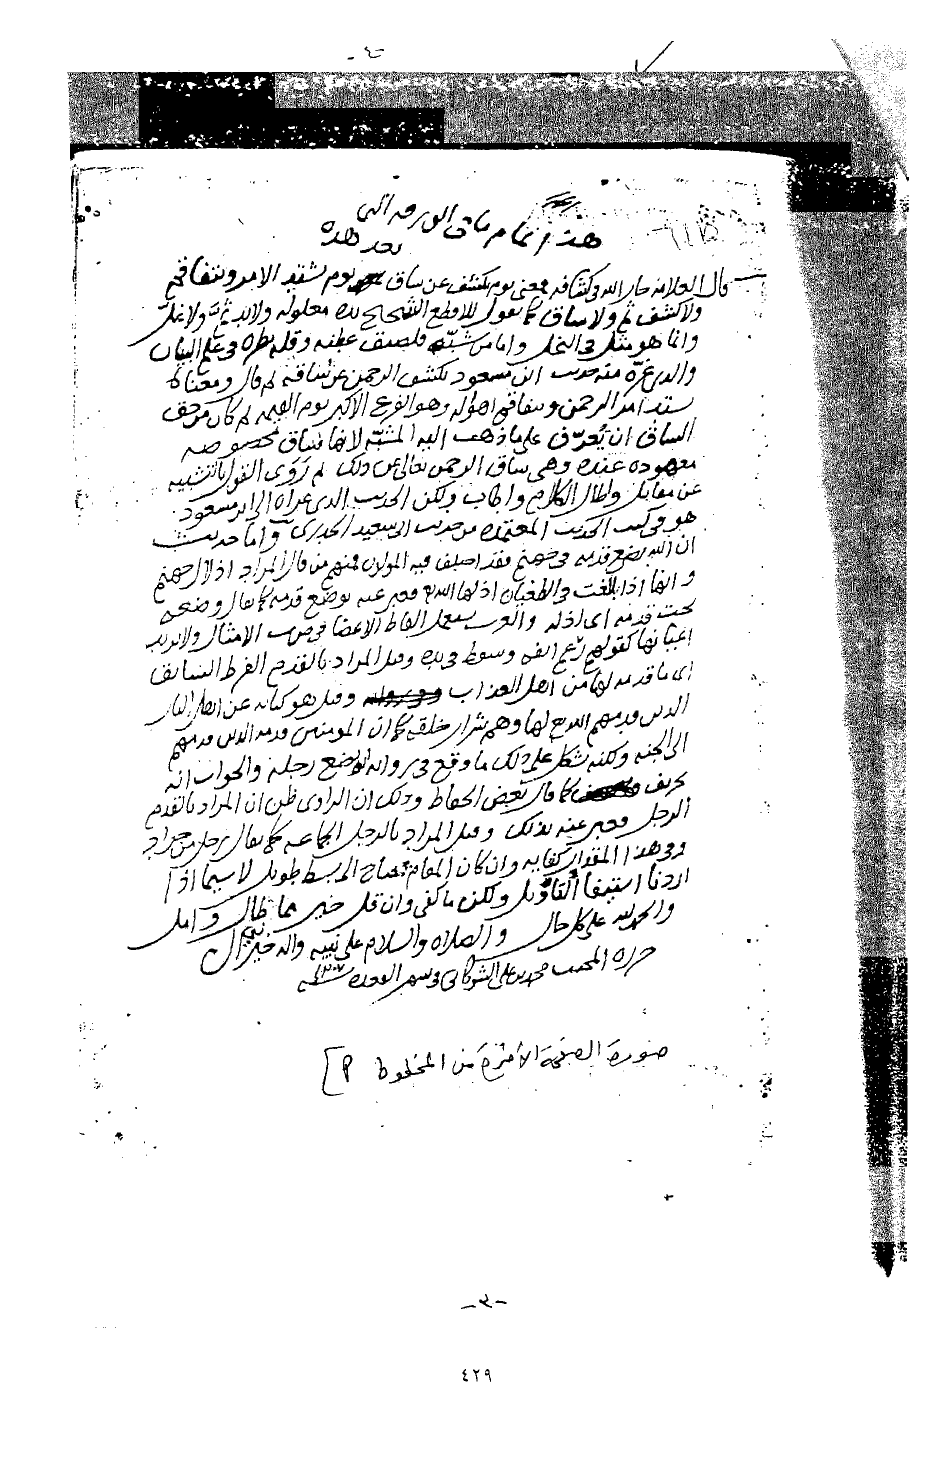 هذا تمام ما في الورقة التي
بعد هذه
قال العلامة جار الله في كشافه فمعنى يوم يكشف عن ساق يوم يشتد الامر ويتفاقم
ولا كشف ثم ولا ساق كما تقول للاقطع الشحيح يده مغلوله ولا يد ثم ولا غل
وانما هو مثل في البخل واما من شبه فلضيق عطنه وقلة نظره في علم البيان
والذي غره منه حديث ابن مسعود يكشف الرحمن عن ساقه ثم قال ومعناه
يشتد امر الرحمن ويتفاقم اهواله وهو الفزع الاكبر يوم القيمه ثم كان من حق
الساق ان تعرف على ما ذهب اليه المشبه لانها ساق مخصوصه
معهوده عنده وهي ساق الرحمن تعالى عن ذلك ثم روى القول بالتشبيه
عن مقاتل واطال الكلام واجاب ولكن الحديث الذي عزاه الى ابن مسعود
هو في كتب الحديث المعتمده من حديث ابي سعيد الخدري واما حديث
ان الله يضع قدمه في جهنم فقد اختلف فيه المؤلون فمنهم من قال المراد اذلال جهنم
وانها اذا بالغت في الطغيان اذلها الله فعبر عنه بوضع قدمه كما يقال وضعته
تحت قدمه اي اذله والعرب تستعمل الفاظ الاعضا في ضرب الامثال ولا تريد
اعيانها كقولهم رغم انفه وسقط في يده وقيل المراد بالقدم الفرط السابق
اي ما قدمه لها من اهل العذاب وقيل هو كنايه عن اهل النار
الذين قدمهم الله لها وهم شرار خلقه كما ان المومنين قدمه الذين قدمهم
الى الجنه ولكنه يشكل على ذلك ما وقع في روايه يضع رجله والجواب انه
تحريف كما قال بعض الحفاظ وذلك ان الراوي ظن ان المراد بالقدم
الرجل فعبر عنه بذلك وقيل المراد بالرجل الجماعه كما يقال رجل من جراد
وفي هذا المقدار كفايه وان كان المقام يحتاج الى بسط طويل لا سيما اذا
اردنا استيفا التاويل ولكن ما كفى وان قل خير مما طال وامل
والحمد لله على كل حال والصلاه والسلام على نبيه واله خير آل
حرره المجيب محمد بن علي الشوكاني في شهر القعده سنة
صورة الصفحة الأخيرة من المخطوط [ P
-٣-
٤٢٩